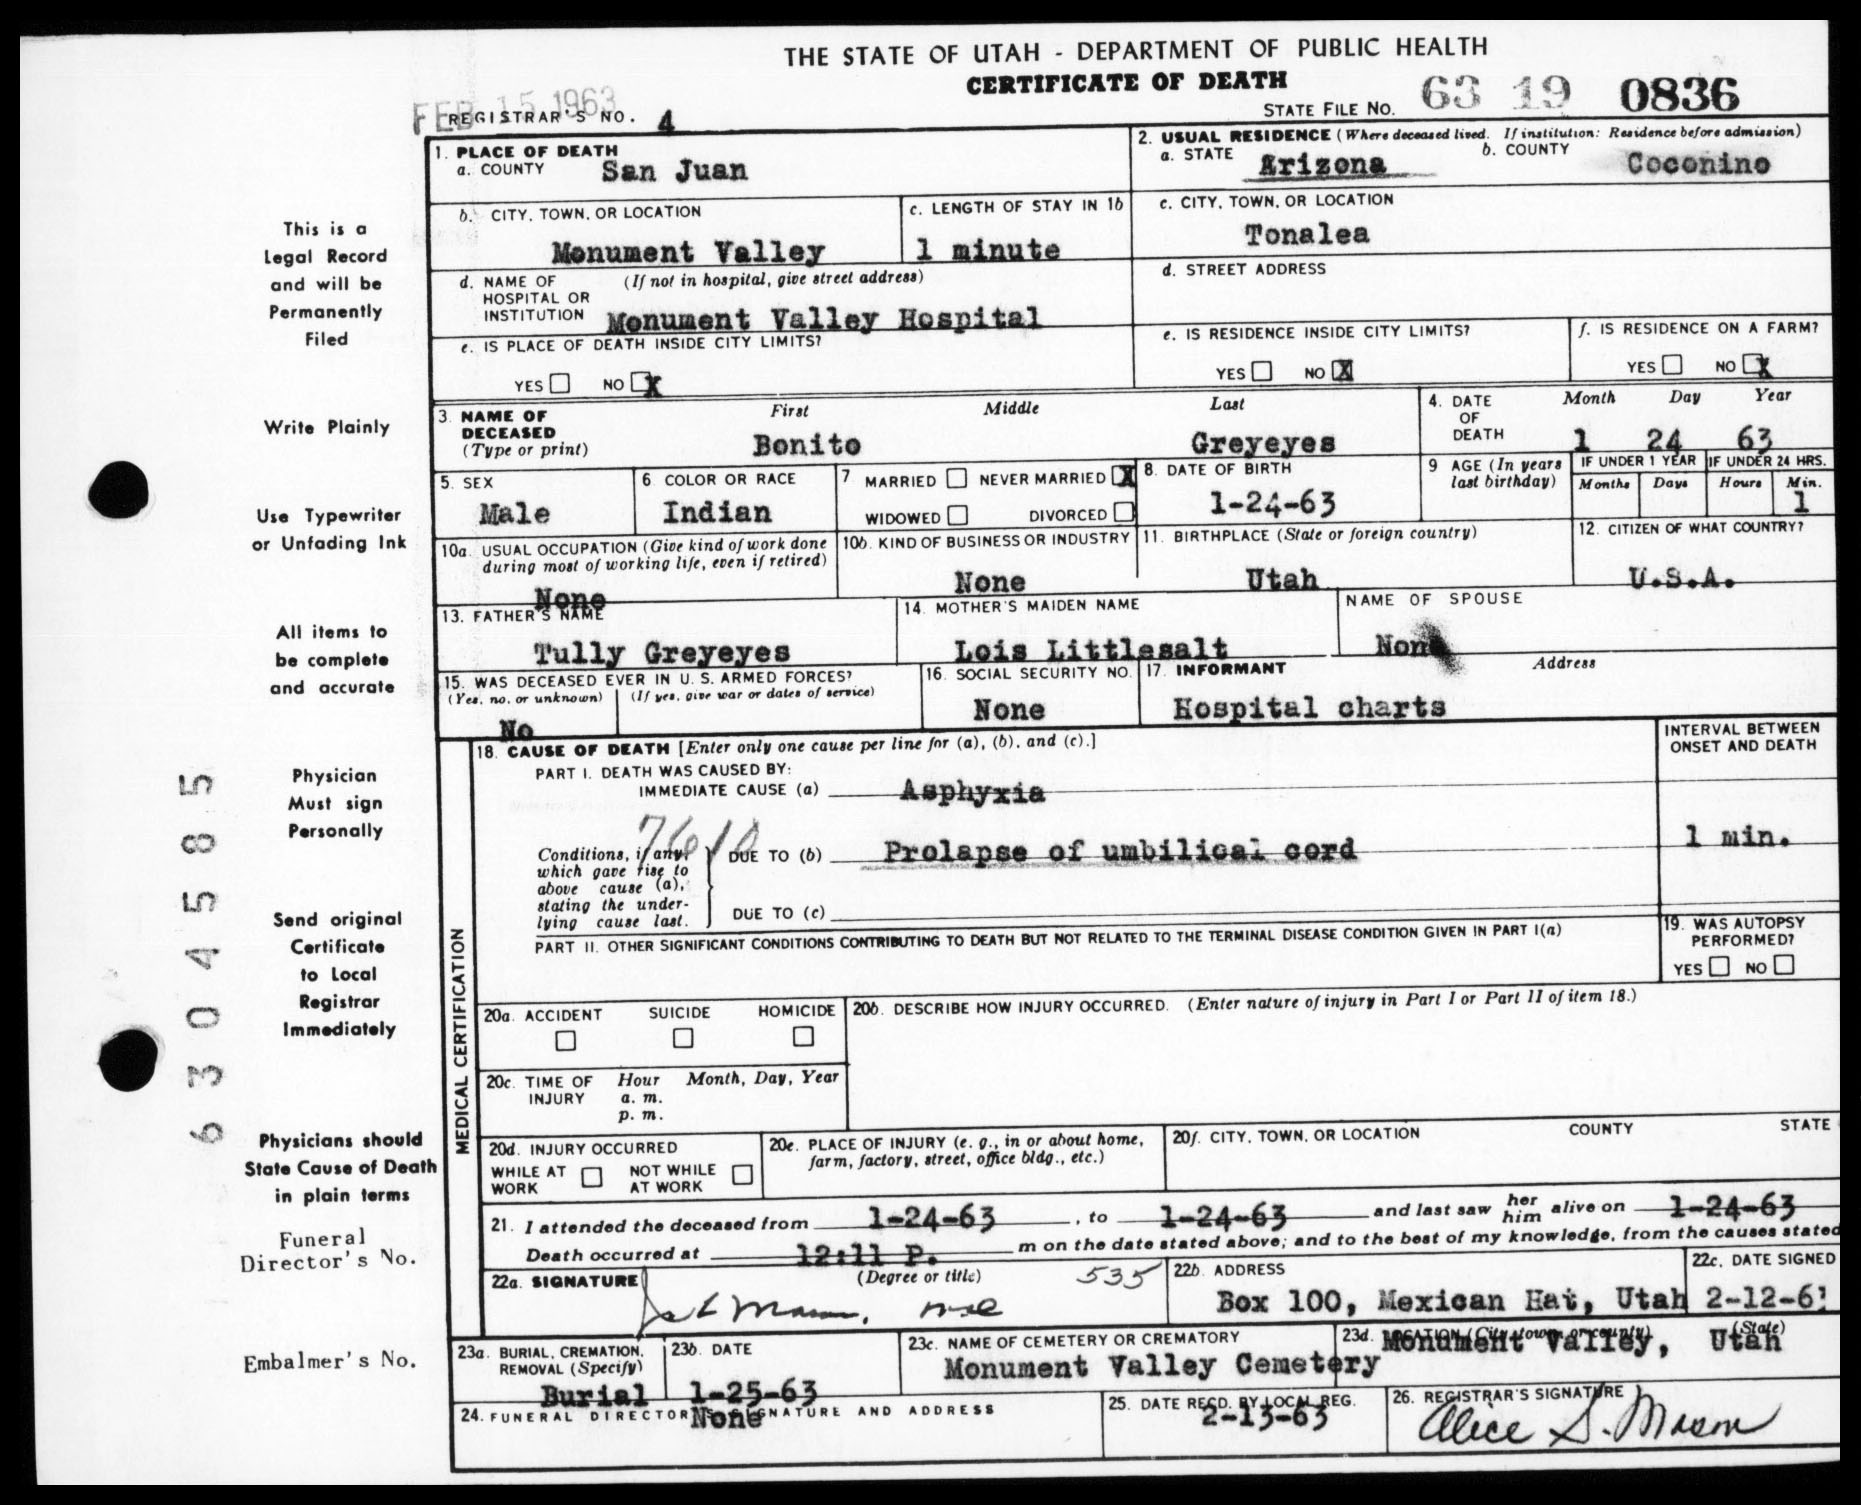 THE STATE OF UTAH - DEPARTMENT OF PUBLIC HEALTH
CERTIFICATE OF DEATH
FEB 15 1963
REGISTRAR'S NO. 4
STATE FILE NO. 63 19 0836
This is a
Legal Record
and will be
Permanently
Filed
Write Plainly
Use Typewriter
or Unfading Ink
All items to
be complete
and accurate
Physician
Must sign
Personally
Send original
Certificate
to Local
Registrar
Immediately
Physicians should
State Cause of Death
in plain terms
Funeral
Director's No.
Embalmer's No.
6304585
1. PLACE OF DEATH
a. COUNTY San Juan
2. USUAL RESIDENCE (Where deceased lived. If institution: Residence before admission)
a. STATE Arizona b. COUNTY Coconino
b. CITY, TOWN, OR LOCATION
Monument Valley
c. LENGTH OF STAY IN 1b
1 minute
c. CITY, TOWN, OR LOCATION
Tonalea
d. NAME OF HOSPITAL OR INSTITUTION (If not in hospital, give street address)
Monument Valley Hospital
d. STREET ADDRESS
e. IS PLACE OF DEATH INSIDE CITY LIMITS?
YES NO X
e. IS RESIDENCE INSIDE CITY LIMITS?
YES NO X
f. IS RESIDENCE ON A FARM?
YES NO X
3. NAME OF DECEASED (Type or print)
First Middle Last
Bonito Greyeyes
4. DATE OF DEATH
Month Day Year
1 24 63
5. SEX
Male
6. COLOR OR RACE
Indian
7. MARRIED NEVER MARRIED X
WIDOWED DIVORCED
8. DATE OF BIRTH
1-24-63
9 AGE (In years last birthday)
IF UNDER 1 YEAR
Months Days
IF UNDER 24 HRS.
Hours Min.
1
10a. USUAL OCCUPATION (Give kind of work done during most of working life, even if retired)
None
10b. KIND OF BUSINESS OR INDUSTRY
None
11. BIRTHPLACE (State or foreign country)
Utah
12. CITIZEN OF WHAT COUNTRY?
U.S.A.
13. FATHER'S NAME
Tully Greyeyes
14. MOTHER'S MAIDEN NAME
Lois Littlesalt
NAME OF SPOUSE
None
15. WAS DECEASED EVER IN U. S. ARMED FORCES?
(Yes, no, or unknown) (If yes, give war or dates of service)
No
16. SOCIAL SECURITY NO.
None
17. INFORMANT Address
Hospital charts
MEDICAL CERTIFICATION
18. CAUSE OF DEATH [Enter only one cause per line for (a), (b), and (c).]
INTERVAL BETWEEN ONSET AND DEATH
PART I. DEATH WAS CAUSED BY:
IMMEDIATE CAUSE (a) Asphyxia
Conditions, if any, which gave rise to above cause (a), stating the underlying cause last.
DUE TO (b) Prolapse of umbilical cord
1 min.
DUE TO (c)
PART II. OTHER SIGNIFICANT CONDITIONS CONTRIBUTING TO DEATH BUT NOT RELATED TO THE TERMINAL DISEASE CONDITION GIVEN IN PART I(a)
19. WAS AUTOPSY PERFORMED?
YES NO
20a. ACCIDENT SUICIDE HOMICIDE
20b. DESCRIBE HOW INJURY OCCURRED. (Enter nature of injury in Part I or Part II of item 18.)
20c. TIME OF INJURY Hour Month, Day, Year
a. m.
p. m.
20d. INJURY OCCURRED
WHILE AT WORK NOT WHILE AT WORK
20e. PLACE OF INJURY (e. g., in or about home, farm, factory, street, office bldg., etc.)
20f. CITY, TOWN, OR LOCATION COUNTY STATE
21. I attended the deceased from 1-24-63, to 1-24-63 and last saw her him alive on 1-24-63
Death occurred at 12:11 P. m on the date stated above; and to the best of my knowledge, from the causes stated
22a. SIGNATURE (Degree or title) 535
Mason,
22b. ADDRESS
Box 100, Mexican Hat, Utah
22c. DATE SIGNED
2-12-6
23a. BURIAL, CREMATION, REMOVAL (Specify)
Burial
23b. DATE
1-25-63
23c. NAME OF CEMETERY OR CREMATORY
Monument Valley Cemetery
23d. LOCATION (City, town, or county) (State)
Monument Valley, Utah
24. FUNERAL DIRECTOR'S SIGNATURE AND ADDRESS
None
25. DATE RECD. BY LOCAL REG.
2-13-63
26. REGISTRAR'S SIGNATURE
Alice S. Mason